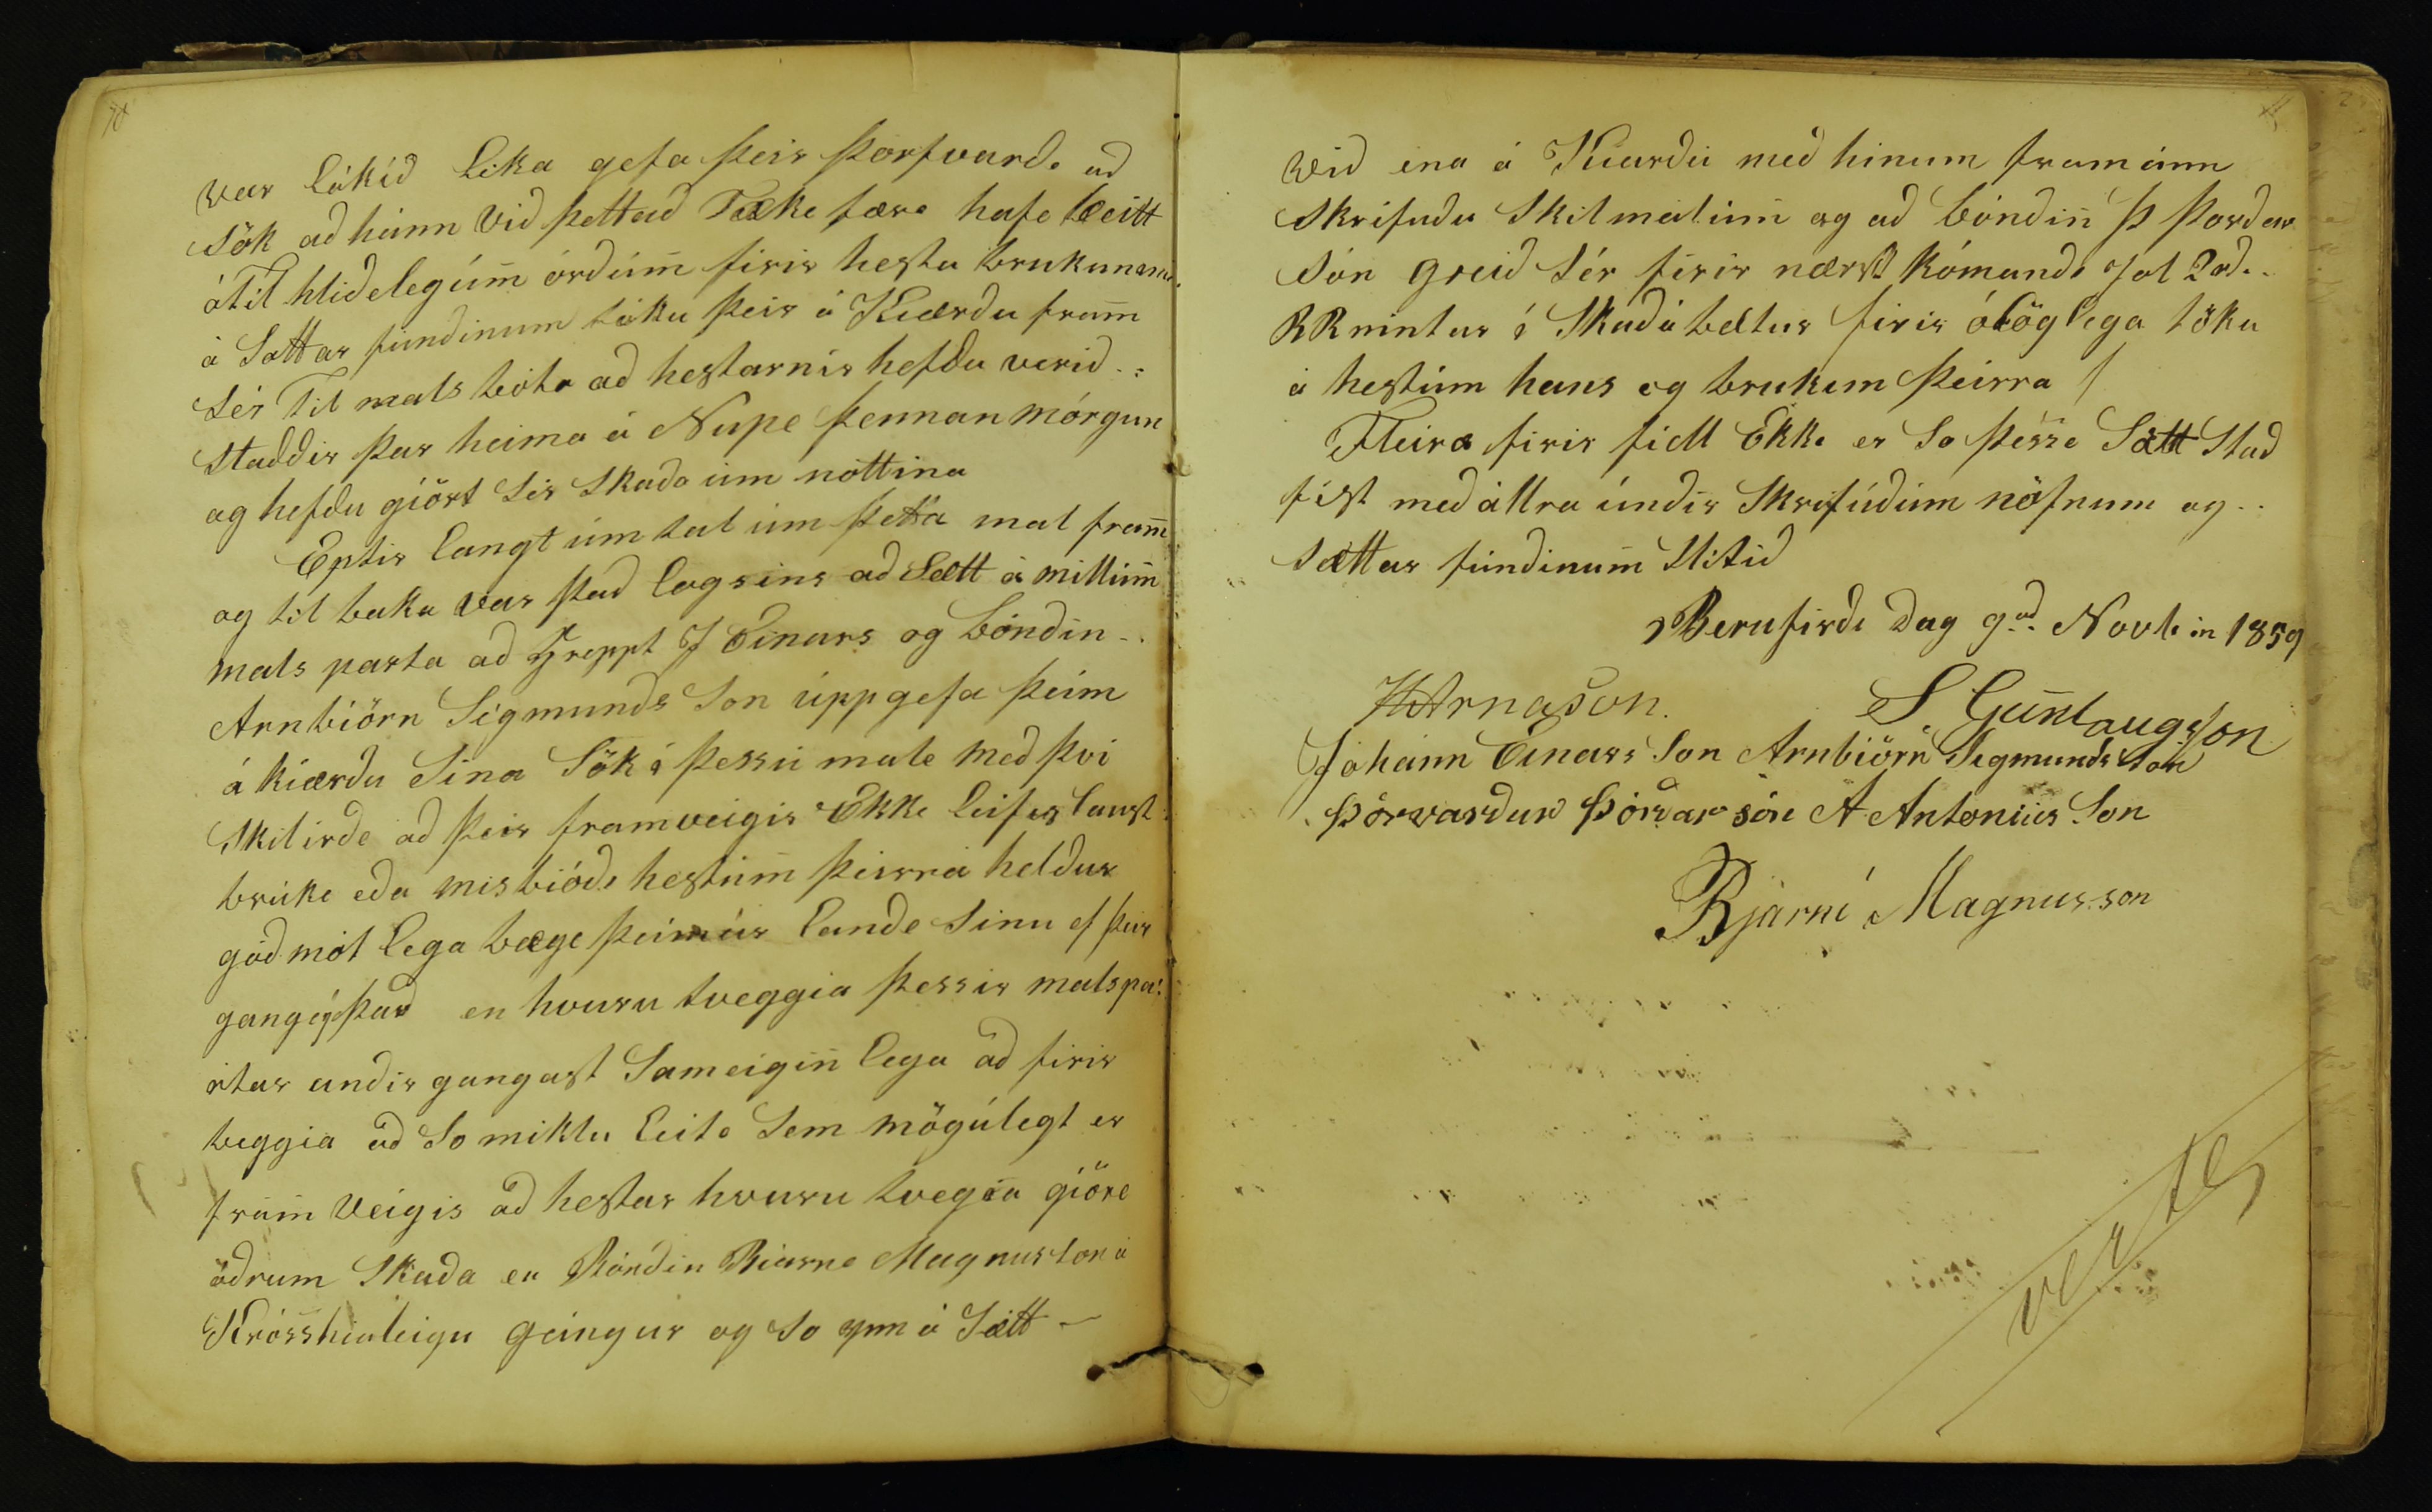 70
var lokið lika gefa þeir Þorfvarde að
sök að hann við þettað Tækefære hafe beitt
ótilhliðelegum orðum firir hesta brukunena
á Sættar fundinum tóku þeir á Kiærðu fram̄
sér Til malsbóta að hestarnir hefdu verið
staddir þar heima á Nupe þennan mórgun
og hefdu giört sér skaða um nóttina
Eptir langt úm tal um þetta mal fram̄
og til baka var það lagsins að Sætt á millum̄
mals parta að Hreppt J Einars og bóndin
Arnbiörn Sigmunds Son uppgefa þeim
á kiærðu Sina Sök i þessu male með því
Skilirde að þeir framveigis Ekke leifis laust
brúke eða misbióde hestum̄ þeirra heldur
góðmótlega bæge þeim úr lande sinu ef þeir
gangi þar en hvuru tveggia þessir malspa:
rtar undir gangast Sameigin̄lega að firir
beggia að So miklu leite Sem mögulegt er
fram̄veigis að hestar hvuru tvegia giöre
öðrum Skaða en Bóndin Biarne Magnusson á
Krosshialeigu geingur og So ynn á Sætt
við ena á Kiærðu með hinum framann
skrifuðu Skilmalum̄ og að bóndin̄ Þ Þorðar
són greið sér firir nærstkómande Jol 2 rd.
RRmintar í Skaðabætur firir ólöglega töku
á hestum hans og brukun þeirra /
Fleira firir fiell Ekke er So þesse Sætt Stað
fest með allra undir Skrifuðum nöfnum og
Sættar fundinum̄ slitið
Berufirde Dag 9ad Novbr in 1859
HArnason. S. Gun̄laugsson
Jóhann Einars Son Arnbiörn Sigmunds Son
Þórvarður Þórðar són A Antoniús Son
Bjarni Magnusson
verte